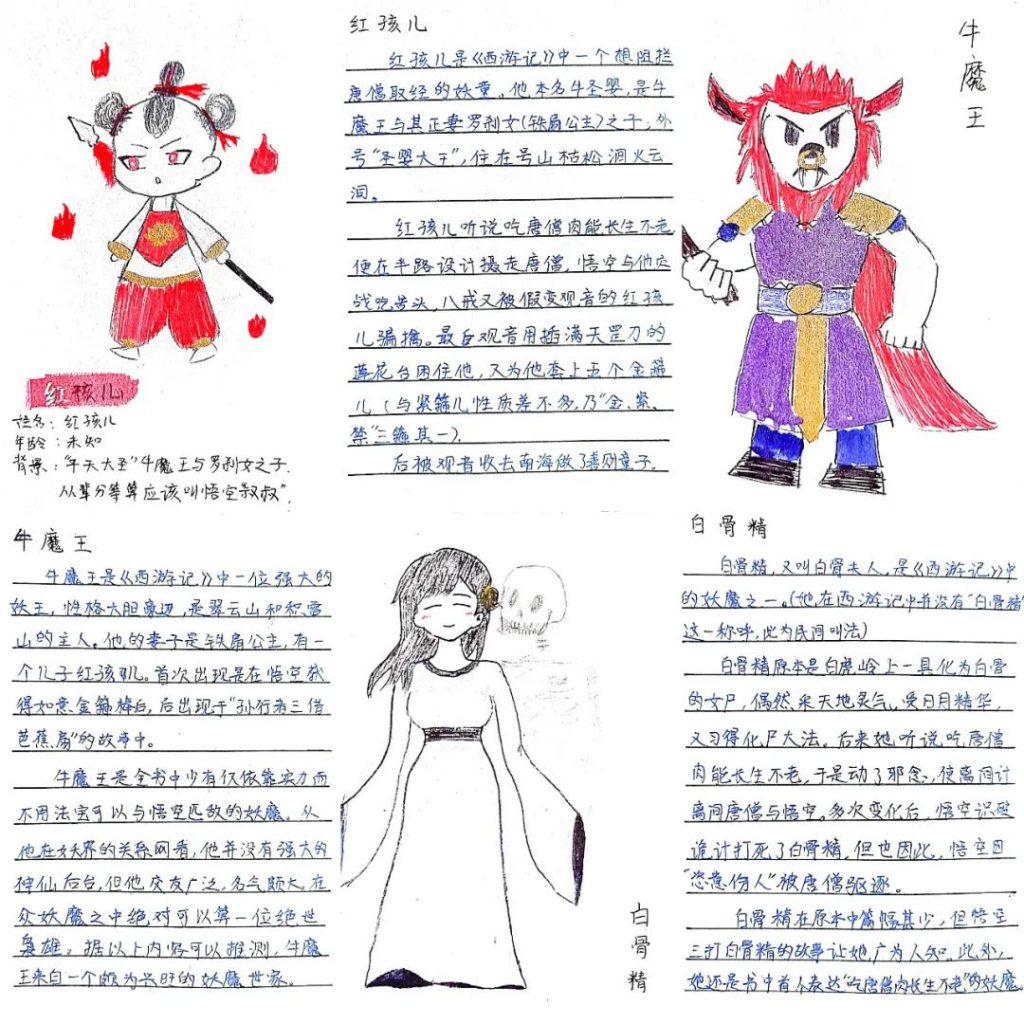 红孩儿
姓名：红孩儿
年龄：未知
背景："平天大圣"牛魔王与罗刹女之子.
从辈分等算应该叫悟空叔叔".
红孩儿
红孩儿是《西游记》中一个想阻拦
唐僧取经的妖童。他本名牛圣婴，是牛
魔王与其正妻罗刹女(铁扇公主)之子，外
号"圣婴大王"，住在号山枯松涧火云
洞。
红孩儿听说吃唐僧肉能长生不老
便在半路设计摄走唐僧，悟空与他交
战吃苦头，八戒又被假变观音的红孩
儿骗擒。最后观音用插满天罡刀的
莲花台困住他，又为他套上五个金箍
儿（与紧箍儿性质差不多，乃"金、紧、
禁"三箍其一）.
后被观音收去南海做了善财童子.
牛魔王
牛魔王
牛魔王是《西游记》中一位强大的
妖王，性格大胆豪迈，是翠云山和积雷
山的主人。他的妻子是铁扇公主，有一
个儿子红孩儿。首次出现是在悟空获
得如意金箍棒后，后出现于"孙行者三借
芭蕉扇"的故事中。
牛魔王是全书中少有仅依靠实力而
不用法宝可以与悟空匹敌的妖魔。从
他在妖界的关系网看，他并没有强大的
神仙后台，但他交友广泛，名气颇大，在
众妖魔之中绝对可以算一位绝世
枭雄。据以上内容可以推测，牛魔
王来自一个颇为兴旺的妖魔世家。
白骨精
白骨精
白骨精，又叫白骨夫人，是《西游记》中
的妖魔之一。(她在西游记中并没有"白骨精"
这一称呼，此为民间叫法)
白骨精原本是白虎岭上一具化为白骨
的女尸，偶然采天地灵气，受日月精华，
又习得化尸大法。后来她听说吃唐僧
肉能长生不老，于是动了邪念，使离间计
离间唐僧与悟空。多次变化后，悟空识破
诡计打死了白骨精，但也因此，悟空因
"恣意伤人"被唐僧驱逐。
白骨精在原本中篇幅甚少，但悟空
三打白骨精的故事让她广为人知。此外，
她还是书中首个表达"吃唐僧肉长生不老"的妖魔。